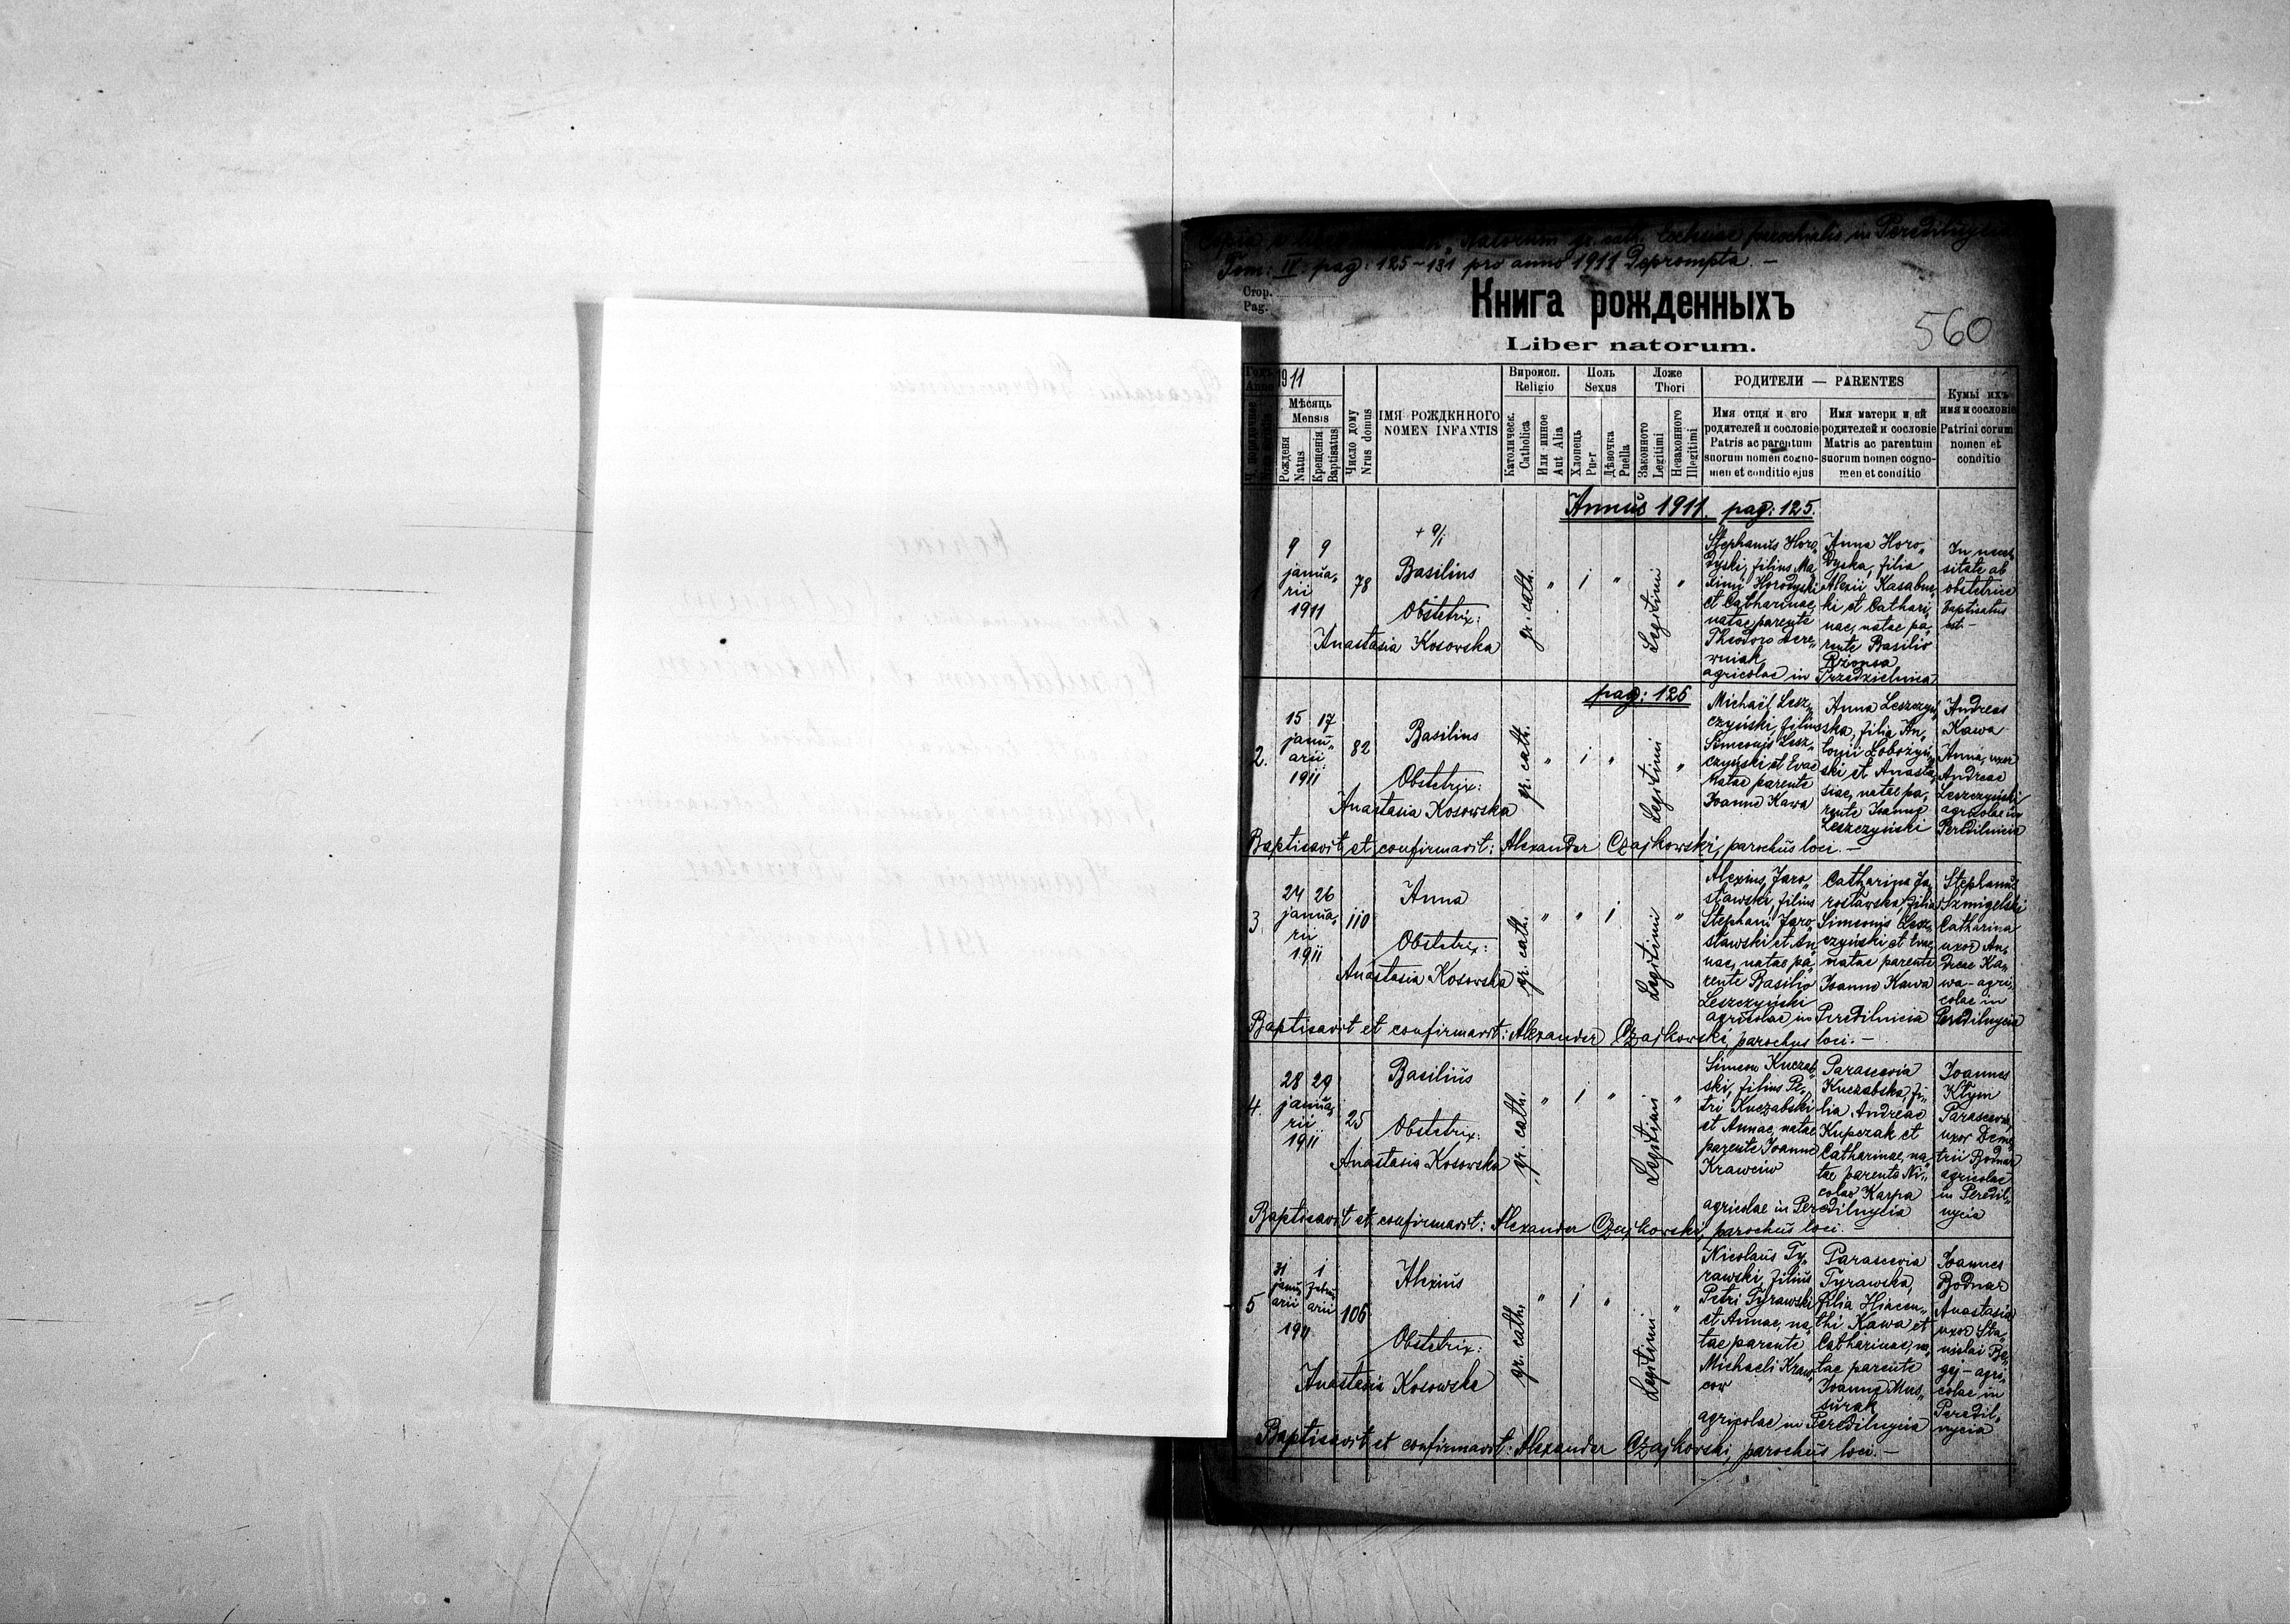 Natorum gr. cath. Ecclesiae parochialis in Peredilnycia
Tom: IV: pag: 125-131 pro anno 1911 Deprompta. -
Стор.
Pag.
Книга рожденныхъ
560
Liber natorum.
Годъ
Anno
1911
Мѣсяць
Mensis
Рожденя
Natus
Крещенія
Baptisatus
Число дому
Nrus domus
ИМЯ РОЖДЕННОГО
NOMEN INFANTIS
Вироисп.
Religio
Католическ.
Catholica
Или инное
Aut Alia
Поль
Sexus
Хлопець
Puer
Дѣвочка
Puella
Ложе
Thori
Законного
Legitimi
Незаконного
Illegitimi
РОДИТЕЛИ — PARENTES
Имя отця и его
родителей и сословіе
Patris ac parentum
suorum nomen cogno-
men et conditio ejus
Имя матери и ей
родителей и сословіе
Matris ac parentum
suorum nomen cogno-
men et conditio
Кумы ихъ
имя и сословіе
Patrini eorum
nomen et
conditio
Annus 1911. pag: 125.
9 9
janua,,
rii
1911
78
+ 9/1
Basilius
Obstetrix:
Anastasia Kosowska
gr. cath.
" 1 "
Legitimi
"
Stephanus Horo,,
dyski, filius Ma,,
ximi Horodyski
et Catharinae,
natae parente
Theodoro Dere,,
wniak
Anna Horo,,
dyska, filia
Alexii Kasabuc,,
ki et Cathari,,
nae, natae pa,,
rente Basilio
agricolae in Przedzielnica
In neces,,
sitate ab
obstetrice
baptisatus
est. -
pag: 126
2.
15 17
janu,,
arii
1911
82
Basilius
Obstetrix:
Anastasia Kosowska
gr. cath.
" 1 "
Legitimi
"
Michaël Lesz,,
czyński, filius
Simeonis Lesz,,
czyński et Evae
natae parente
Joanne Kawa
Anna Leszczyń,,
ska, filia An,,
tonii Łobozyń,,
ski et Anasta,,
siae, natae pa,,
rente Joanne
Leszczyński
Andreas
Kawa
Anna, uxor
Andreae
Leszczyński
agricolae in
Peredilnicia
Baptisavit et confirmavit: Alexander Czajkowski, parochus loci. -
3.
24 26
janua,,
rii
1911
110
Anna
Obstetrix:
Anastasia Kosowska
gr. cath.
" " 1
Legitimi
"
Alexius Jaro,,
sławski, filius
Stephani Jaro,,
sławski et An,,
nae, natae pa,,
rente Basilio
Leszczyński
Catharina Ja,,
rosławska, filia
Simeonis Lesz,,
czyński et Evae
natae parente
Joanne Kawa
agricolae in Peredilnicia
Stephanus
Szmigelski
Catharina
uxor An,,
dreae Ka,,
wa - agri,,
colae in
Peredilnycia
Baptisavit et confirmavit: Alexander Czajkowski, parochus loci. -
4.
28 29
janua,,
rii
1911
25
Basilius
Obstetrix:
Anastasia Kosowska
gr. cath.
" 1 "
Legitimi
"
Simeon Kuczab,,
ski, filius Pe,,
tri Kuczabski
et Annae, natae
parente Joanne
Krawciw
Parascevia
Kuczabska, fi,,
lia Andreae
Kupczak et
Catharinae, na,,
tae parente Ni,,
colao Karpa
agricolae in Peredilnycia
Joannes
Kłym
Parascevia,
uxor Deme,,
trii Bodnar
agricolae
in Peredil,,
nycia
Baptisavit et confirmavit: Alexander Czajkowski, parochus loci. -
5
31
janu,,
arii
1
febru,,
arii
1911
106
Alexius
Obstetrix:
Anastasia Kosowska
gr. cath.
" 1 "
Legitimi
"
Nicolaus Ty,,
rawski, filius
Petri Tyrawski
et Annae, na,,
tae parente
Michaeli Kraw,,
cow
Parascevia
Tyrawska,
filia Hiacin,,
thi Kawa et
Catharinae, na,,
tae parente
Joanne Mus,,
surak
agricolae in Peredilnycia
Joannes
Bodnar
Anastasia
uxor Sta,,
nislai Be,,
gej - agri,,
colae in
Peredil,,
nycia
Baptisavit et confirmavit: Alexander Czajkowski, parochus loci. -